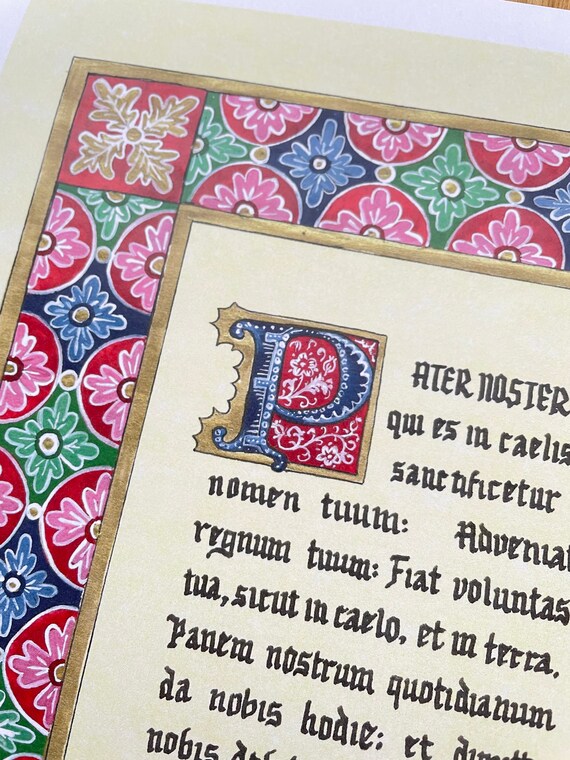 PATER NOSTER
qui es in caelis
sanctificetur
nomen tuum: Adveniat
regnum tuum: Fiat voluntas
tua, sicut in caelo, et in terra.
Panem nostrum quotidianum
da nobis hodie: et
nobis